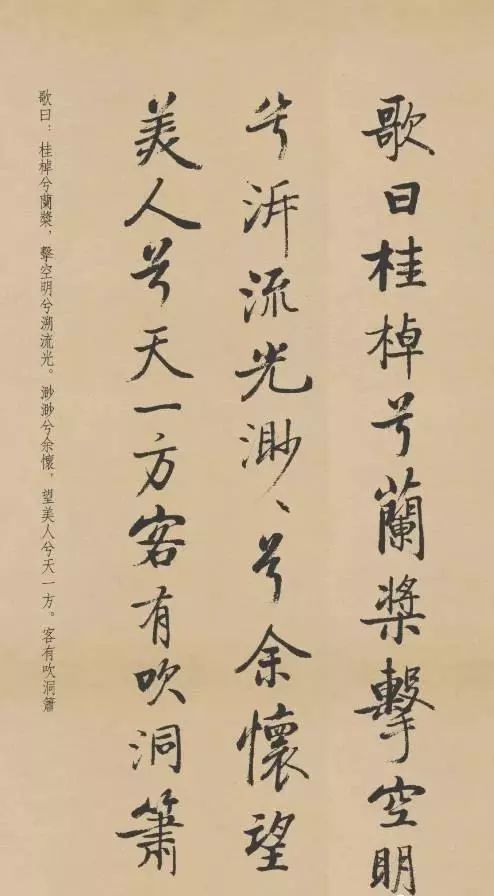 歌曰桂棹兮蘭槳擊空明
兮泝流光渺〻兮余懷望
美人兮天一方客有吹洞簫
歌曰：桂棹兮蘭槳，擊空明兮溯流光。渺渺兮余懷，望美人兮天一方。客有吹洞簫